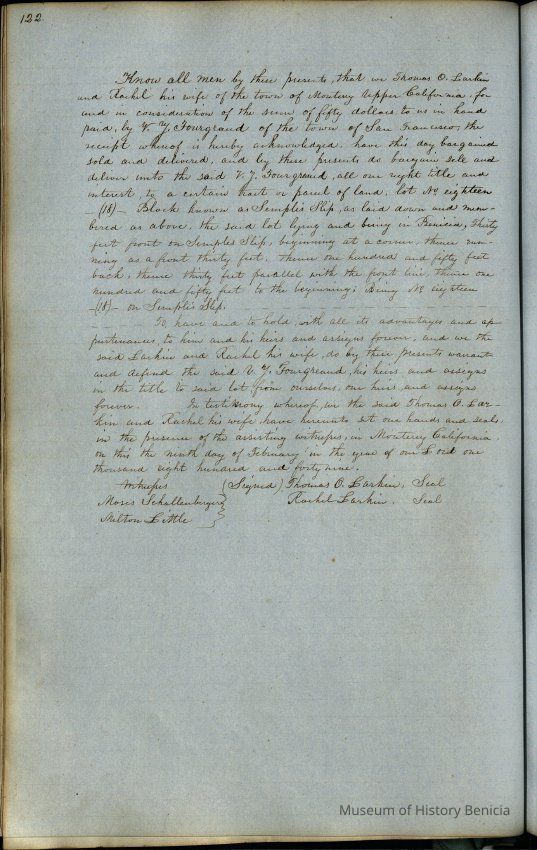 122
Know all men by these presents, that we Thomas O. Larkin
and Rachel his wife of the town of Monterey Upper California, for
and in consideration of the sum of fifty dollars to us in hand
paid, by V. J. Fourgeaud of the town of San Francisco, the
receipt whereof is hereby acknowledged, have this day bargained
sold and delivered, and by these presents do bargain sell and
deliver unto the said V. J. Fourgeaud, all our right title and
interest, to a certain tract or parcel of land, lot No eighteen
—(18)— Block known as Semple's Slip, as laid down and num-
bered as above, the said lot lying and being in Benicia, thirty
feet front on Semples Slip, beginning at a corner, thence run-
ning as a front thirty feet, thence one hundred and fifty feet
back, thence thirty feet parallel with the front line, thence one
hundred and fifty feet to the beginning; Being No eighteen
—(18)— on Semple's Slip.
To have and to hold, with all its advantages and ap-
purtenances, to him and his heirs and assigns forever, and we the
said Larkin and Rachel his wife, do by these presents warrant
and defend the said V. J. Fourgeaud, his heirs and assigns
in the title to said lot from ourselves, our heirs, and assigns
forever. In testimony whereof, we the said Thomas O. Lar-
kin and Rachel his wife, have hereunto set our hands and seals
in the presence of the assisting witnesses, in Monterey California.
on this the ninth day of February in the year of our Lord one
thousand eight hundred and forty nine.
Witnesses (Signed) Thomas O. Larkin, Seal
Moses Schallenberger Rachel Larkin, Seal
Milton Little
Museum of History Benicia